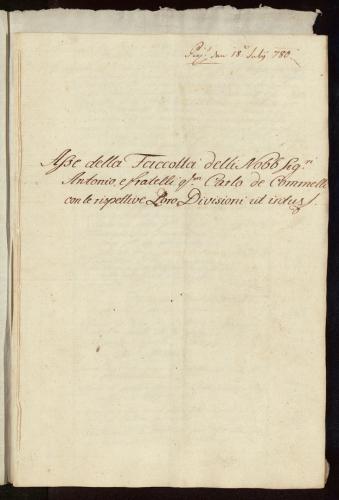 den 18.t July 780
Asse della Faccoltà delli Nobb Sig.ri
Antonio, e fratelli q.m Carlo de Comnelli
con le rispettive Loro Divisioni ut intus